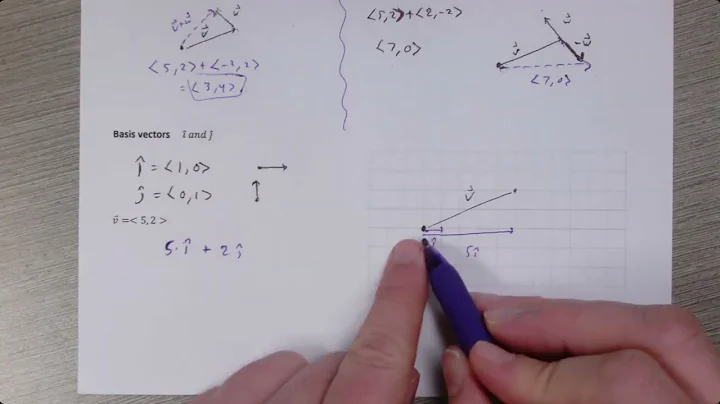 v⃗+u⃗
u⃗
v⃗
⟨5,2⟩+⟨-2,2⟩
=⟨3,4⟩
⟨5,2⟩+⟨2,-2⟩
⟨7,0⟩
u⃗
v⃗
-u⃗
⟨7,0⟩
Basis vectors î and ĵ
î = ⟨1,0⟩
ĵ = ⟨0,1⟩
v⃗ =< 5, 2 >
5·î + 2ĵ
v⃗
5î